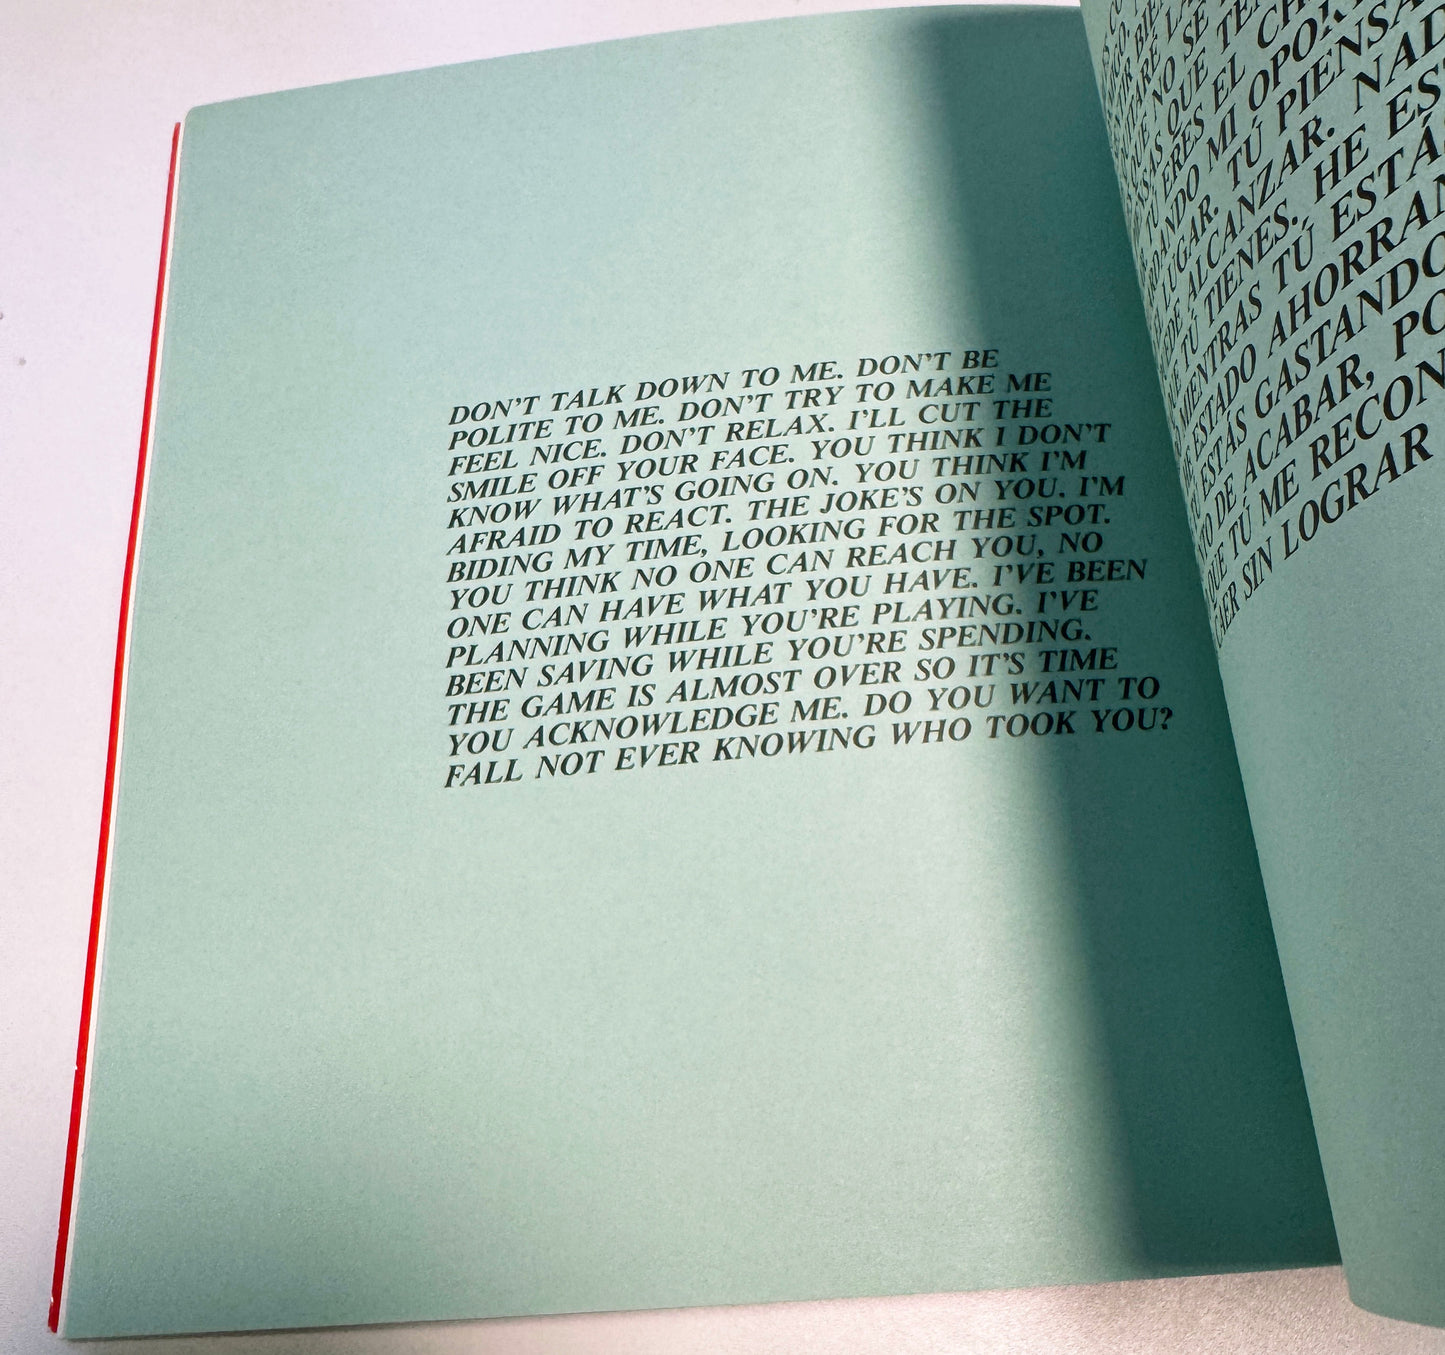 DON'T TALK DOWN TO ME. DON'T BE
POLITE TO ME. DON'T TRY TO MAKE ME
FEEL NICE. DON'T RELAX. I'LL CUT THE
SMILE OFF YOUR FACE. YOU THINK I DON'T
KNOW WHAT'S GOING ON. YOU THINK I'M
AFRAID TO REACT. THE JOKE'S ON YOU. I'M
BIDING MY TIME, LOOKING FOR THE SPOT.
YOU THINK NO ONE CAN REACH YOU, NO
ONE CAN HAVE WHAT YOU HAVE. I'VE BEEN
PLANNING WHILE YOU'RE PLAYING. I'VE
BEEN SAVING WHILE YOU'RE SPENDING.
THE GAME IS ALMOST OVER SO IT'S TIME
YOU ACKNOWLEDGE ME. DO YOU WANT TO
FALL NOT EVER KNOWING WHO TOOK YOU?
QUE NO SE
QUE
ERES EL
MI
LUGAR. TÚ
ALCANZAR.
TÚ TIENES. HE
MIENTRAS TÚ
ESTADO
ESTÁS GASTANDO
DE ACABAR,
QUE TÚ ME
CAER SIN LOGRAR